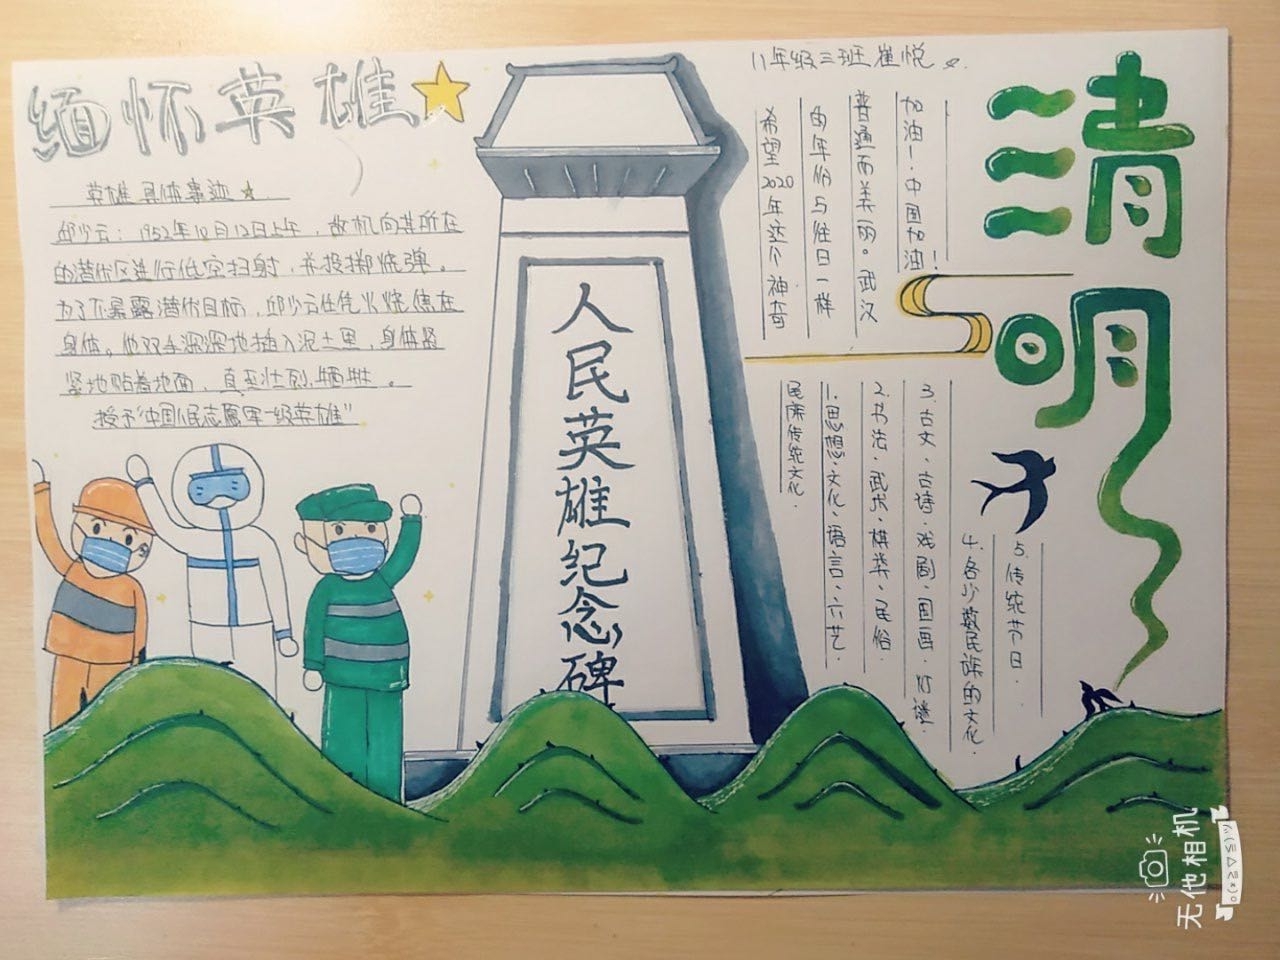 缅怀英雄
英雄具体事迹
邱少云：1952年10月12日上午，敌机向其所在
的潜伏区进行低空扫射，并投掷烧弹。
为了不暴露潜伏目标，邱少云任凭火烧焦在
身体。他双手深深地插入泥土里，身体紧
紧地贴着地面，直至壮烈牺牲。
授予"中国人民志愿军一级英雄"
人民英雄纪念碑
八年级三班崔悦
清明
加油！中国加油！
普通而美丽。武汉
的年份与往日一样
希望2020年这个神奇
民族传统文化.
1.思想、文化、语言、六艺.
2.书法、武术、棋类、民俗
3.古文、古诗、戏剧、国画、灯谜.
4.各少数民族的文化
5.传统节日.
无他相机